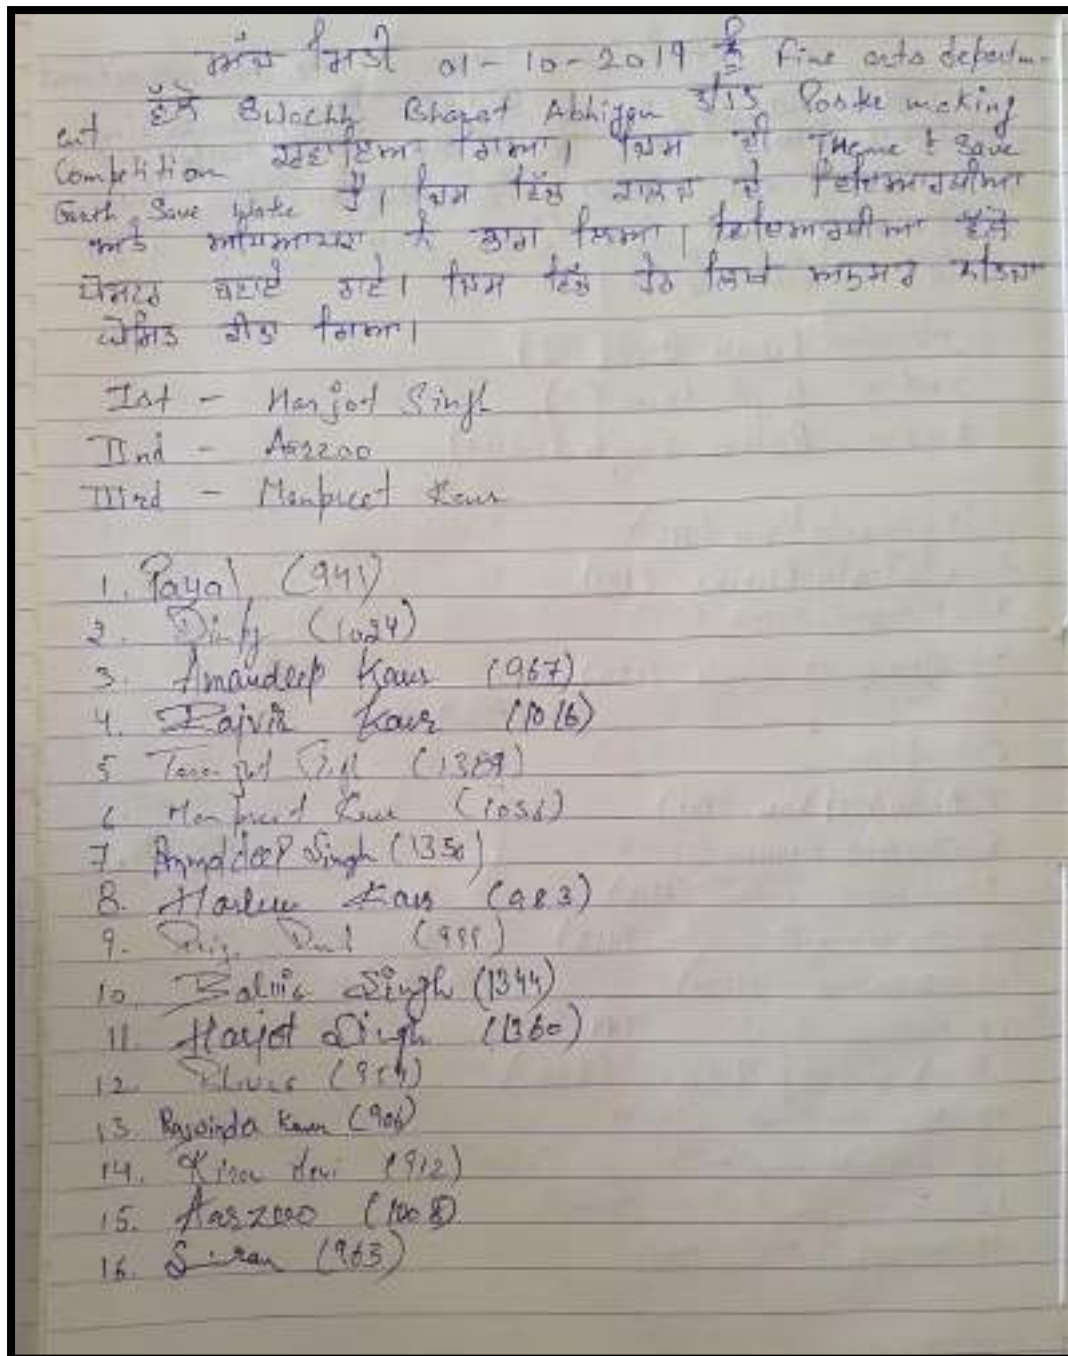 ਅੱਜ ਮਿਤੀ 01-10-2019 ਨੂੰ Fine arts departm-
ent ਵੱਲੋਂ Swachh Bharat Abhigan ਤਹਿਤ Poster making
Competition ਕਰਵਾਇਆ ਗਿਆ। ਜਿਸ ਦੀ Theme Save
Earth Save Water ਹੈ। ਜਿਸ ਵਿੱਚ ਕਾਲਜ ਦੇ ਵਿਦਿਆਰਥੀਆ
ਅਤੇ ਅਧਿਆਪਕਾ ਨੇ ਭਾਗ ਲਿਆ। ਵਿਦਿਆਰਥੀਆ ਵੱਲੋ
ਪੋਸਟਰ ਬਣਾਏ ਗਏ। ਜਿਸ ਵਿੱਚ ਹੇਠ ਲਿਖੇ ਅਨੁਸਾਰ ਨਤੀਜਾ
ਘੋਸ਼ਿਤ ਕੀਤਾ ਗਿਆ।
Ist - Harjot Singh
IInd - Aarzoo
IIIrd - Manpreet Kaur
1. Payal (941)
2. (1024)
3. Amandeep Kaur (967)
4. Rajvir Kaur (1016)
5 (1389)
6 Manpreet Kaur
7. Anmoldeep Singh (1350)
8. Kaur (983)
9.
10. Balvir Singh (1344)
11. Harjot Singh (1360)
12.
13. Rajvinder Kaur (906)
14. Kiran devi (912)
15. Aarzoo (1008)
16. Simran (963)